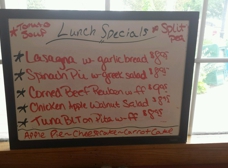 * Tomato Soup
Lunch Specials
* Split Pea
* Lasagna w/ garlic bread $8
* Spinach Pie w/ greek salad $8
* Corned Beef Reuben w/ ff $9
* Chicken Apple Walnut Salad $8
* Tuna BLT on Pita w/ ff $8
Apple Pie ~ Cheesecake ~ Carrot Cake